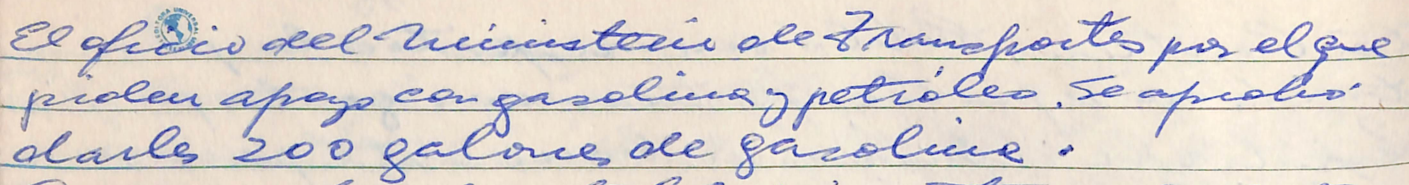 El oficio del Ministerio de Transportes por el que
piden apoyo con gasolina y petróleo. Se aprobó
darles 200 galones de gasolina.